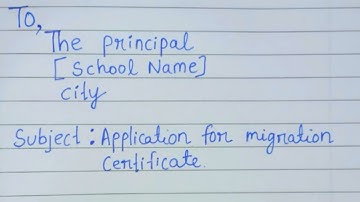 To,
The principal
[School Name]
city
Subject : Application for migration
Certificate.